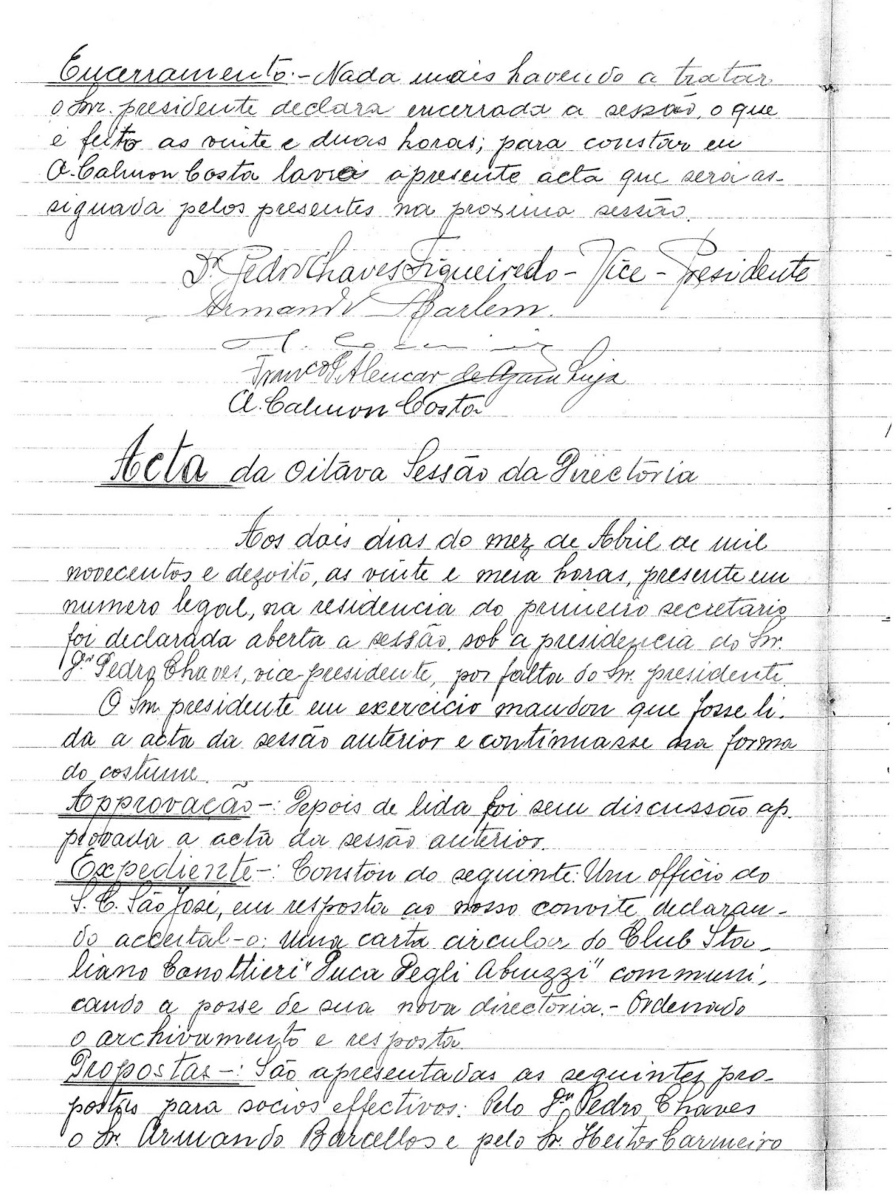 Encerramento:- Nada mais havendo a tratar
o Snr. presidente declara encerrada a sessão, o que
é feito as vinte e duas horas; para constar eu
A. Calmon Costa lavrei apresente acta que será as-
signada pelos presentes na proxima sessão.
Dr Pedro Chaves Figueiredo - Vice - Presidente
Armando Barlem.
Franco Alencar de
A. Calmon Costa
Acta da Oitava Sessão da Directoria
Aos dois dias do mez de Abril de mil
novecentos e dezoito, as vinte e meia horas, presente em
numero legal, na residencia do primeiro secretario
foi declarada aberta a sessão, sob a presidencia do Snr.
Dr Pedro Chaves, vice-presidente, por falta do Sr. presidente.
O Snr. presidente em exercicio mandou que fosse li-
da a acta da sessão anterior e continuasse na forma
do costume.
Approvação-: Depois de lida foi sem discussão ap-
provada a acta da sessão anterior.
Expediente-: Constou do seguinte: Um officio do
S. C. São José, em resposta ao nosso convite declaran-
do acceital-o: Uma carta circular do Club Ita-
liano Canottieri "Duca Degli Abruzzi" communi-
cando a posse de sua nova directoria.- Ordenado
o archivamento e resposta.
Propostas-: São apresentadas as seguintes pro-
postas para socios effectivos: Pelo Dr. Pedro Chaves
o Sr. Armando Barcellos e pelo Sr. Heitor Carneiro